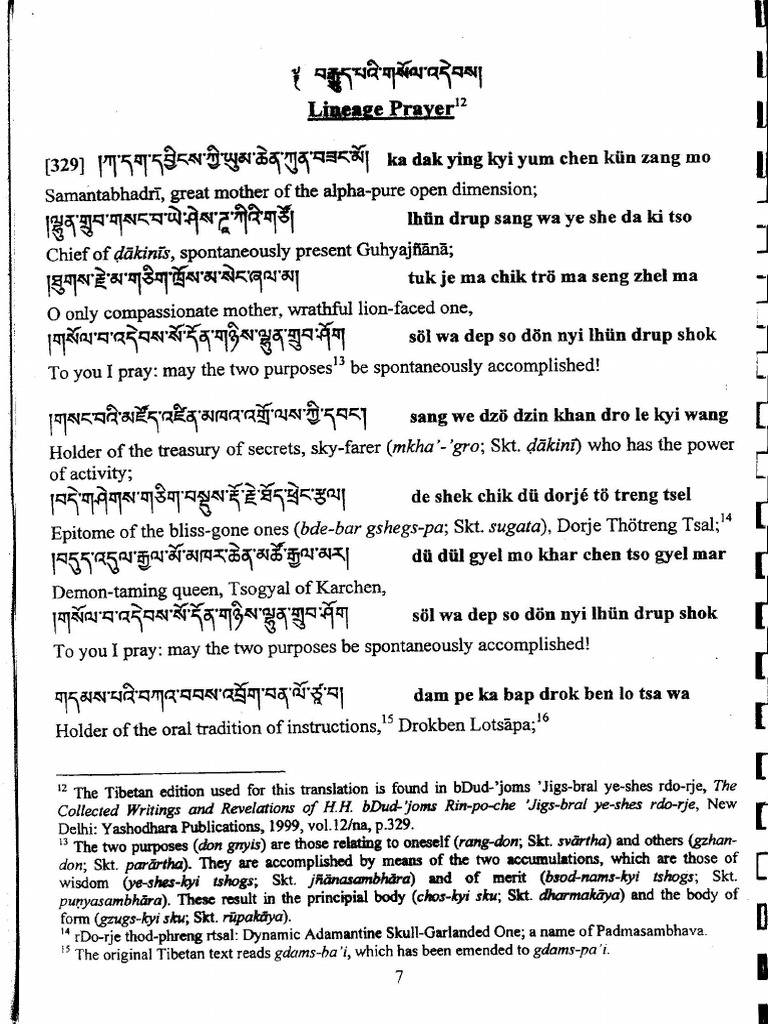 ༈ བརྒྱུད་པའི་གསོལ་འདེབས།
Lineage Prayer12
[329] །ཀ་དག་དབྱིངས་ཀྱི་ཡུམ་ཆེན་ཀུན་བཟང་མོ། ka dak ying kyi yum chen kün zang mo
Samantabhadrī, great mother of the alpha-pure open dimension;
།ལྷུན་གྲུབ་གསང་བ་ཡེ་ཤེས་ཌཱ་ཀིའི་གཙོ། lhün drup sang wa ye she da ki tso
Chief of ḍākinīs, spontaneously present Guhyajñānā;
།ཐུགས་རྗེ་མ་གཅིག་ཁྲོས་མ་སེང་ཞལ་མ། tuk je ma chik trö ma seng zhel ma
O only compassionate mother, wrathful lion-faced one,
།གསོལ་བ་འདེབས་སོ་དོན་གཉིས་ལྷུན་གྲུབ་ཤོག söl wa dep so dön nyi lhün drup shok
To you I pray: may the two purposes13 be spontaneously accomplished!
།གསང་བའི་མཛོད་འཛིན་མཁའ་འགྲོ་ལས་ཀྱི་དབང་། sang we dzö dzin khan dro le kyi wang
Holder of the treasury of secrets, sky-farer (mkha'-'gro; Skt. ḍākinī) who has the power
of activity;
།བདེ་གཤེགས་གཅིག་བསྡུས་རྡོ་རྗེ་ཐོད་ཕྲེང་རྩལ། de shek chik dü dorjé tö treng tsel
Epitome of the bliss-gone ones (bde-bar gshegs-pa; Skt. sugata), Dorje Thötreng Tsal;14
།བདུད་འདུལ་རྒྱལ་མོ་མཁར་ཆེན་མཚོ་རྒྱལ་མར། dü dül gyel mo khar chen tso gyel mar
Demon-taming queen, Tsogyal of Karchen,
།གསོལ་བ་འདེབས་སོ་དོན་གཉིས་ལྷུན་གྲུབ་ཤོག söl wa dep so dön nyi lhün drup shok
To you I pray: may the two purposes be spontaneously accomplished!
གདམས་པའི་བཀའ་བབས་འབྲོག་བན་ལོ་ཙཱ་བ། dam pe ka bap drok ben lo tsa wa
Holder of the oral tradition of instructions,15 Drokben Lotsāpa;16
12 The Tibetan edition used for this translation is found in bDud-'joms 'Jigs-bral ye-shes rdo-rje, The
Collected Writings and Revelations of H.H. bDud-'joms Rin-po-che 'Jigs-bral ye-shes rdo-rje, New
Delhi: Yashodhara Publications, 1999, vol.12/na, p.329.
13 The two purposes (don gnyis) are those relating to oneself (rang-don; Skt. svārtha) and others (gzhan-
don; Skt. parārtha). They are accomplished by means of the two accumulations, which are those of
wisdom (ye-shes-kyi tshogs; Skt. jñānasambhāra) and of merit (bsod-nams-kyi tshogs; Skt.
puṇyasambhāra). These result in the principial body (chos-kyi sku; Skt. dharmakāya) and the body of
form (gzugs-kyi sku; Skt. rūpakāya).
14 rDo-rje thod-phreng rtsal: Dynamic Adamantine Skull-Garlanded One; a name of Padmasambhava.
15 The original Tibetan text reads gdams-ba'i, which has been emended to gdams-pa'i.
7